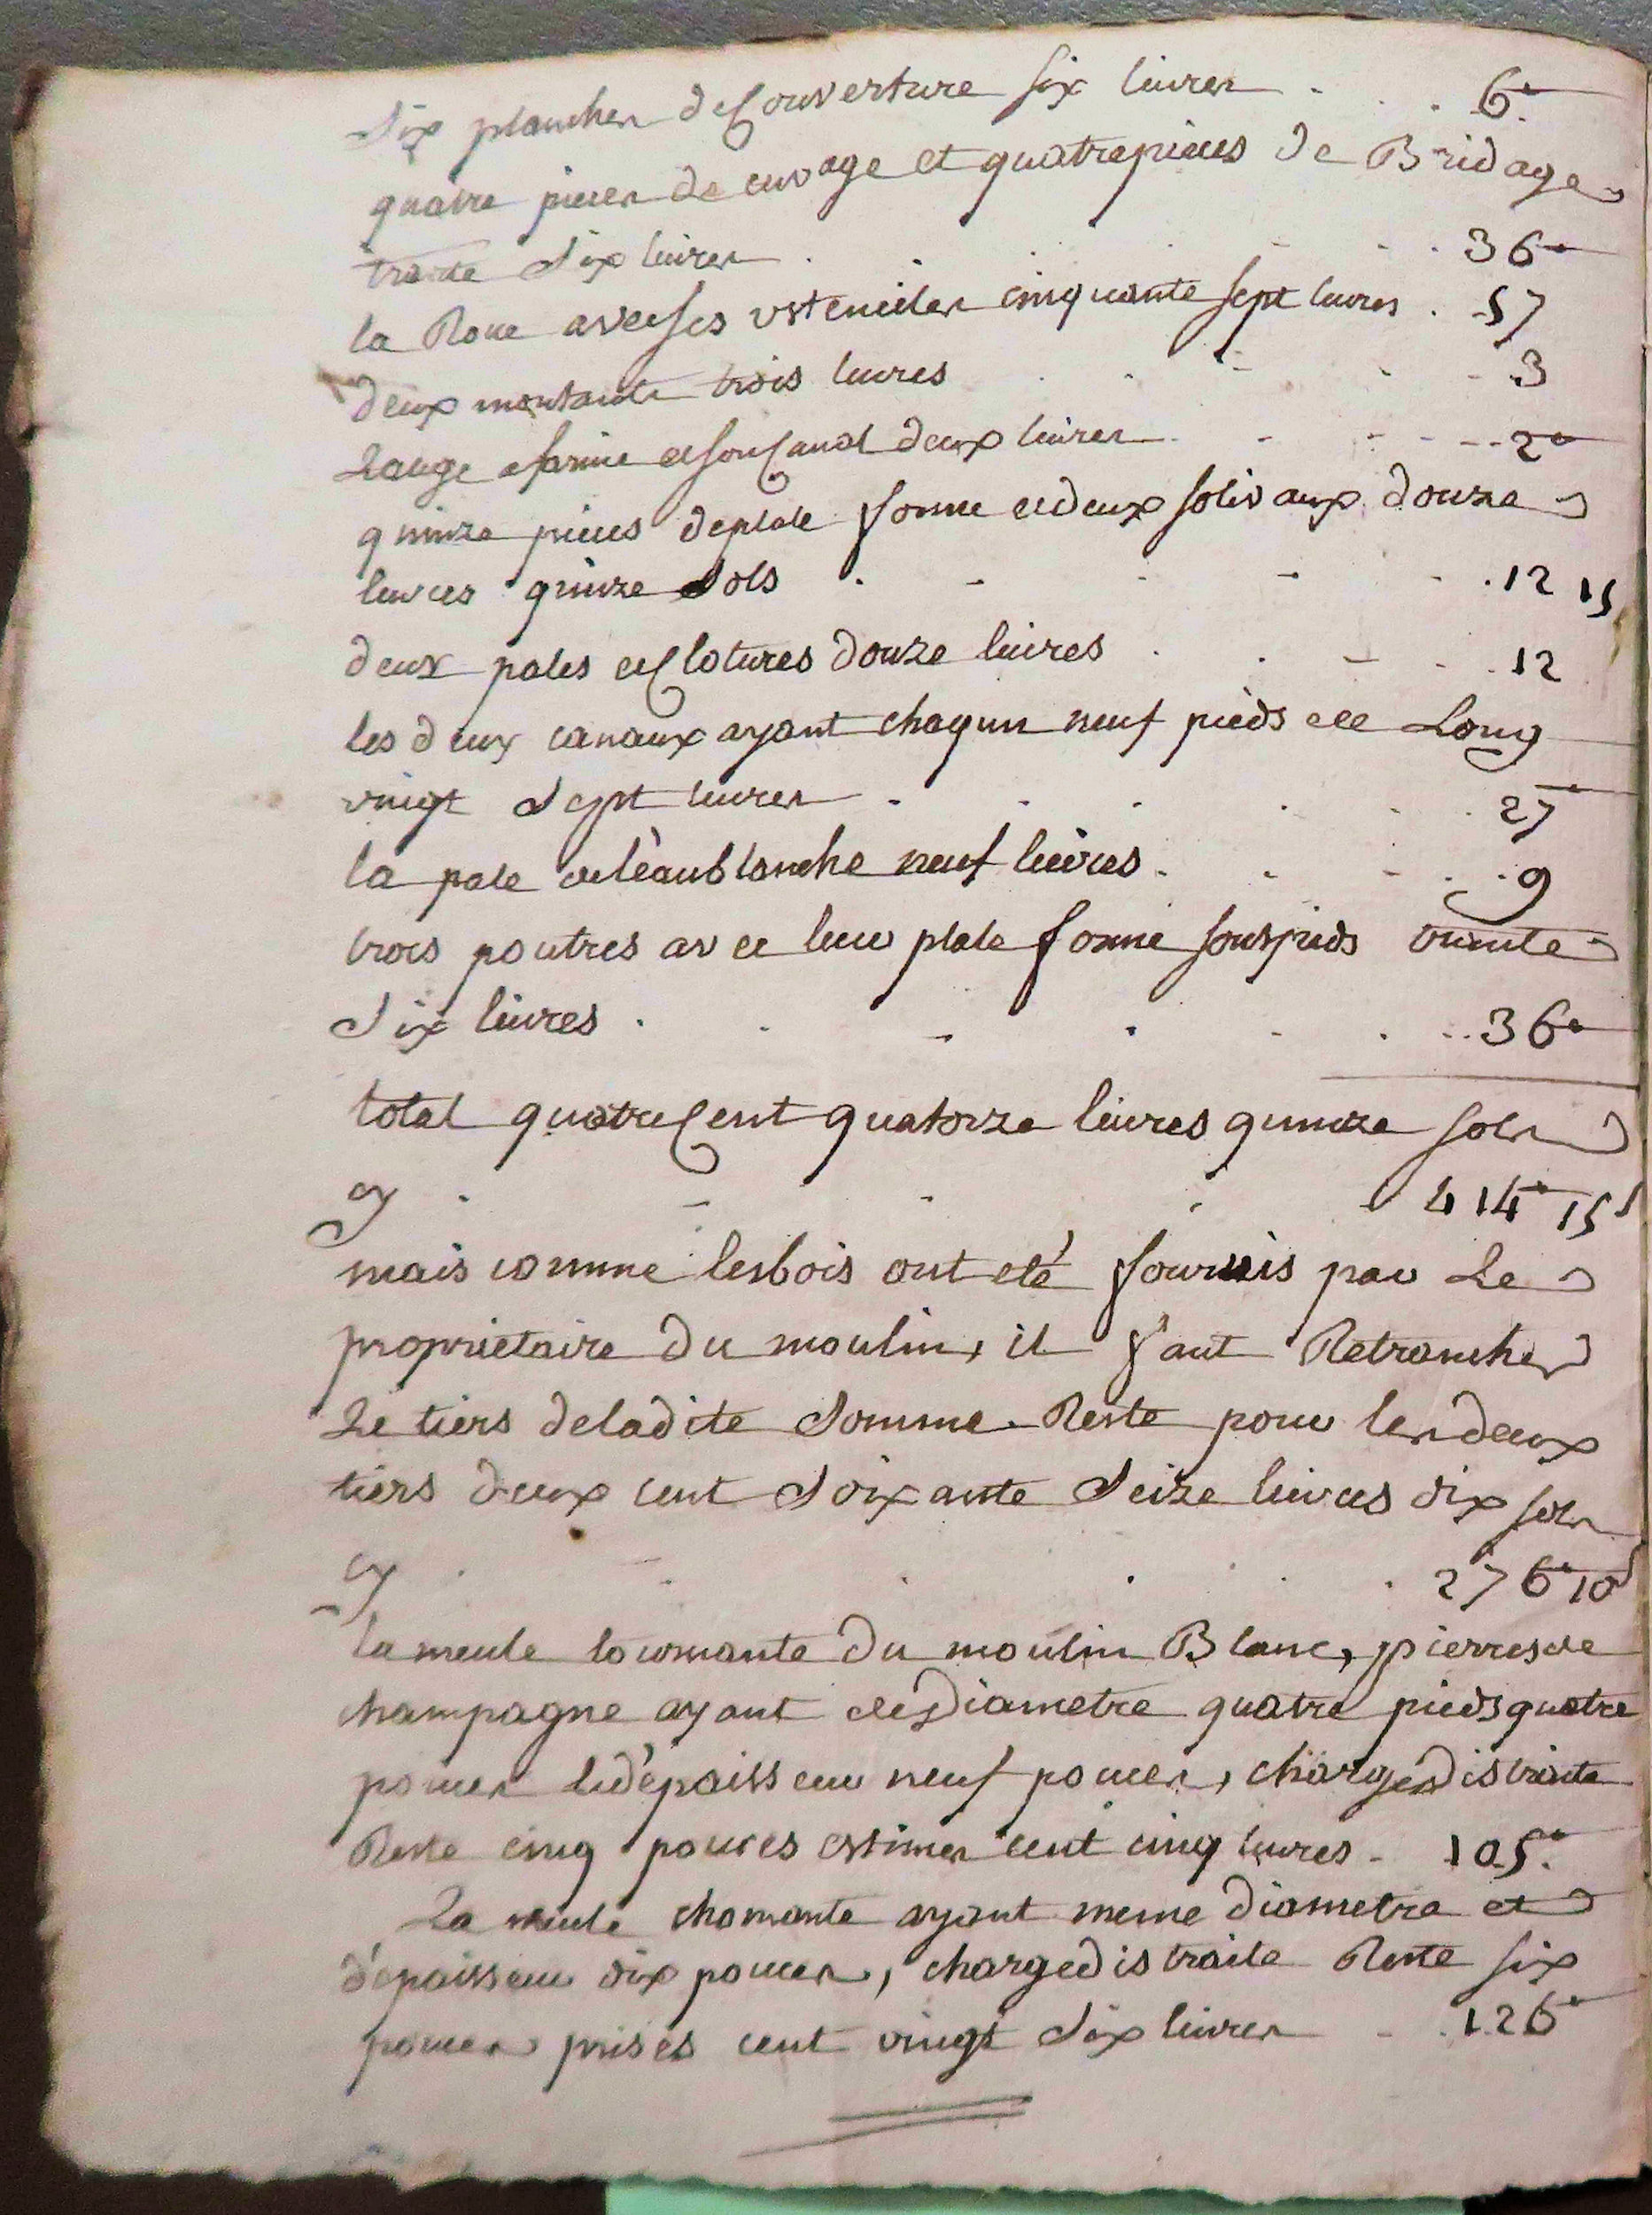 Six planches de Couverture six livres . . . 6#
quatre pieces de cuvage et quatre pieces de Bridage
trente Six livres . . . . 36#
la Roue avec ses ustenciles cinquante sept livres . 57
deux montants trois livres . . . . 3
Lauge a farine et son Canal deux livres . . . . 2#
quinze pieces de plate forme et deux solivaux douze
livres quinze Sols . . . . . 12 15
deux pales et Clotures douze livres . . . . 12
les deux canaux ayant chaqun neuf pieds de Long
vingt Sept livres . . . . . 27#
la pale de l'eau blanche neuf livres . . . . 9
trois poutres avec leur plate forme sous pieds trente
Six livres . . . . . . 36#
total quatre Cent quatorze livres quinze sols
cy . . . . 414# 15s
mais comme les bois ont eté fournis par Le
proprietaire du moulin, il faut Retrancher
Le tiers de la dite Somme. Reste pour les deux
tiers deux cent Soixante Seize livres dix sols
cy . . . . . . 276# 10s
la meule tournante du moulin Blanc, pierres de
champagne ayant de diametre quatre pieds quatre
pouces et d'epaisseur neuf pouces, charge distraite
Reste cinq pouces estimés cent cinq livres . 105#
La meule chomante ayant meme diametre et
d'epaisseur dix pouces, charge distraite Reste six
pouces prisés cent vingt Six livres . . 126#